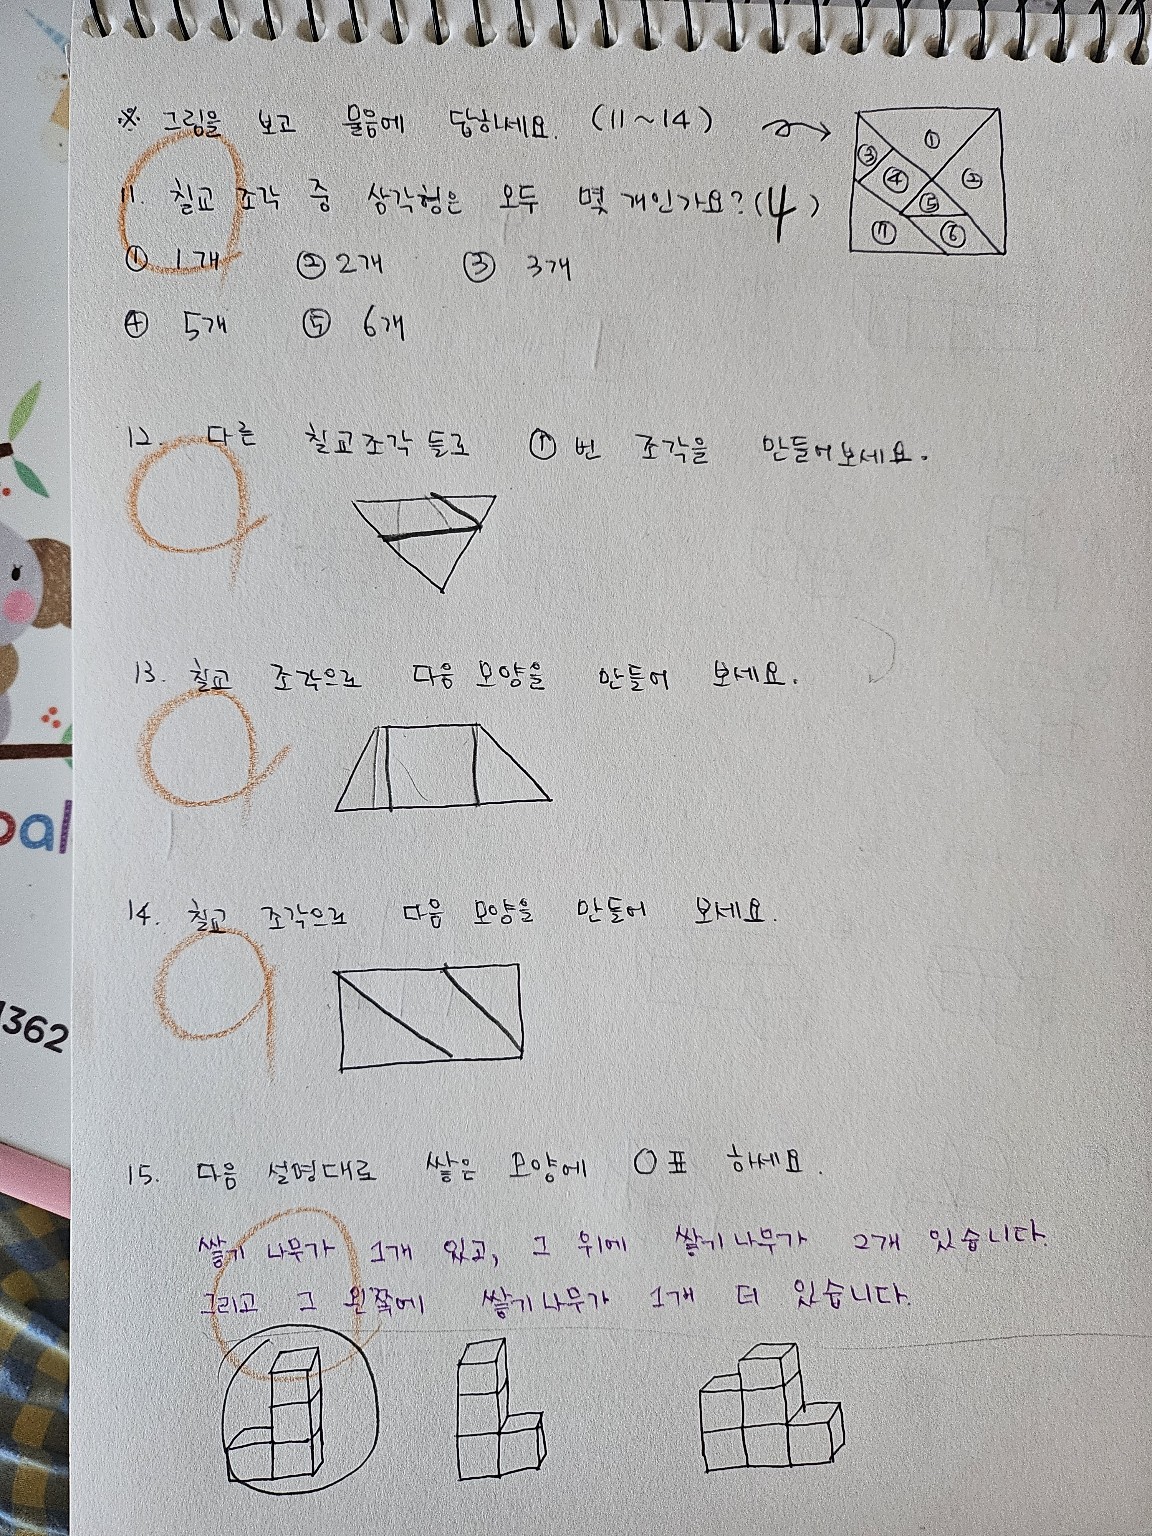 ※ 그림을 보고 물음에 답하세요. (11~14)
① ② ③ ④ ⑤ ⑥ ⑦
11. 칠교 조각 중 삼각형은 모두 몇 개인가요? (4)
① 1개 ② 2개 ③ 3개
④ 5개 ⑤ 6개
12. 다른 칠교조각 들로 ① 번 조각을 만들어보세요.
13. 칠교 조각으로 다음 모양을 만들어 보세요.
14. 칠교 조각으로 다음 모양을 만들어 보세요.
15. 다음 설명대로 쌓은 모양에 ○표 하세요.
쌓기 나무가 1개 있고, 그 위에 쌓기나무가 2개 있습니다.
그리고 그 왼쪽에 쌓기나무가 1개 더 있습니다.
pal
1362